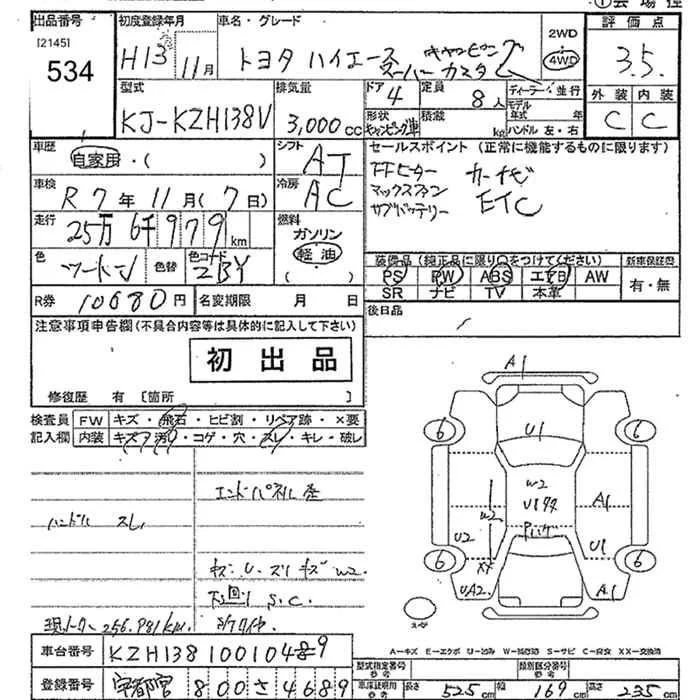 ①会場径
出品番号 初度登録年月 車名・グレード 評価点
[2145]
534
H13 11月
トヨタ ハイエース キャンピング
スーパーカスタム
2WD
4WD
3.5
型式 排気量 ドア 定員 ディーラー・並行
KJ-KZH138V 3,000cc
4 8人
モデル年式 年
形状 キャンピング車 積載 kg ハンドル 左・右
外装 内装
C C
車歴 自家用・( )
シフト AT
セールスポイント (正常に機能するものに限ります)
FFヒーター カーナビ
マックスファン ETC
サブバッテリー
車検 R7年11月(7日)
冷房 AC
走行 25万6千979km
燃料 ガソリン
軽油
( )
色 ツートン 色替 色コード 2BY
装備品 (純正品に限り○をつけてください) 新車保証書
PS PW ABS エアB AW
SR ナビ TV 本革
有・無
R券 10680円 名変期限 月 日
後日品
注意事項申告欄(不具合内容等は具体的に記入して下さい)
初出品
修復歴 有 [箇所 ]
検査員 FW キズ・飛石・ヒビ割・リペア跡・×要
記入欄 内装 キズ・汚・コゲ・穴・スレ・キレ・破レ
エンドパネル歪
ハンドル スレ
キズ.U.スリキズ W2
下回り S.C.
現メーター 256,981km
車台番号 KZH138 10010489
登録番号 宇都宮 800 さ 4689
A1
6 6
U1
W2
W2
A1
U2
U1
XX
UA2
A1
6 6
A=キズ E=エクボ U=凹み W=補修跡 S=サビ C=腐食 XX=交換済
型式指定番号 参考 類別区分番号 参考
車庫証明用 参考 長さ 525cm 幅 169cm 高さ 235cm